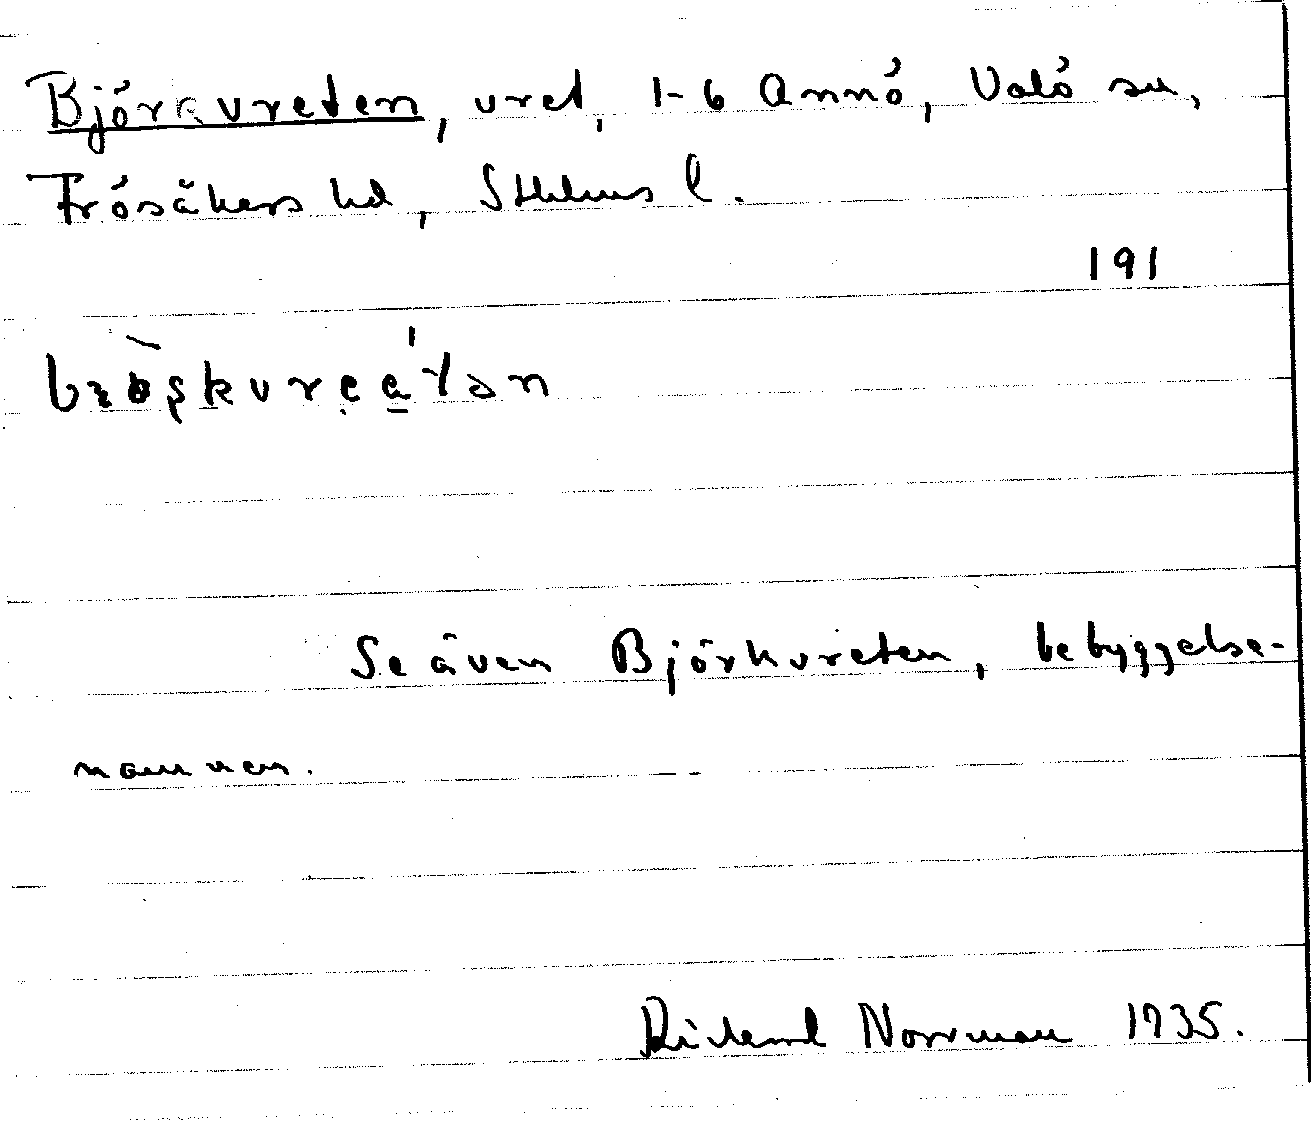 Björkvreten, vret, 1-6 Annö, Valö sn,
Frösåkers hd, Sthlms l.
191
Se även Björkvreten, bebyggelse-
namnen.
Rickard Norrman 1935.